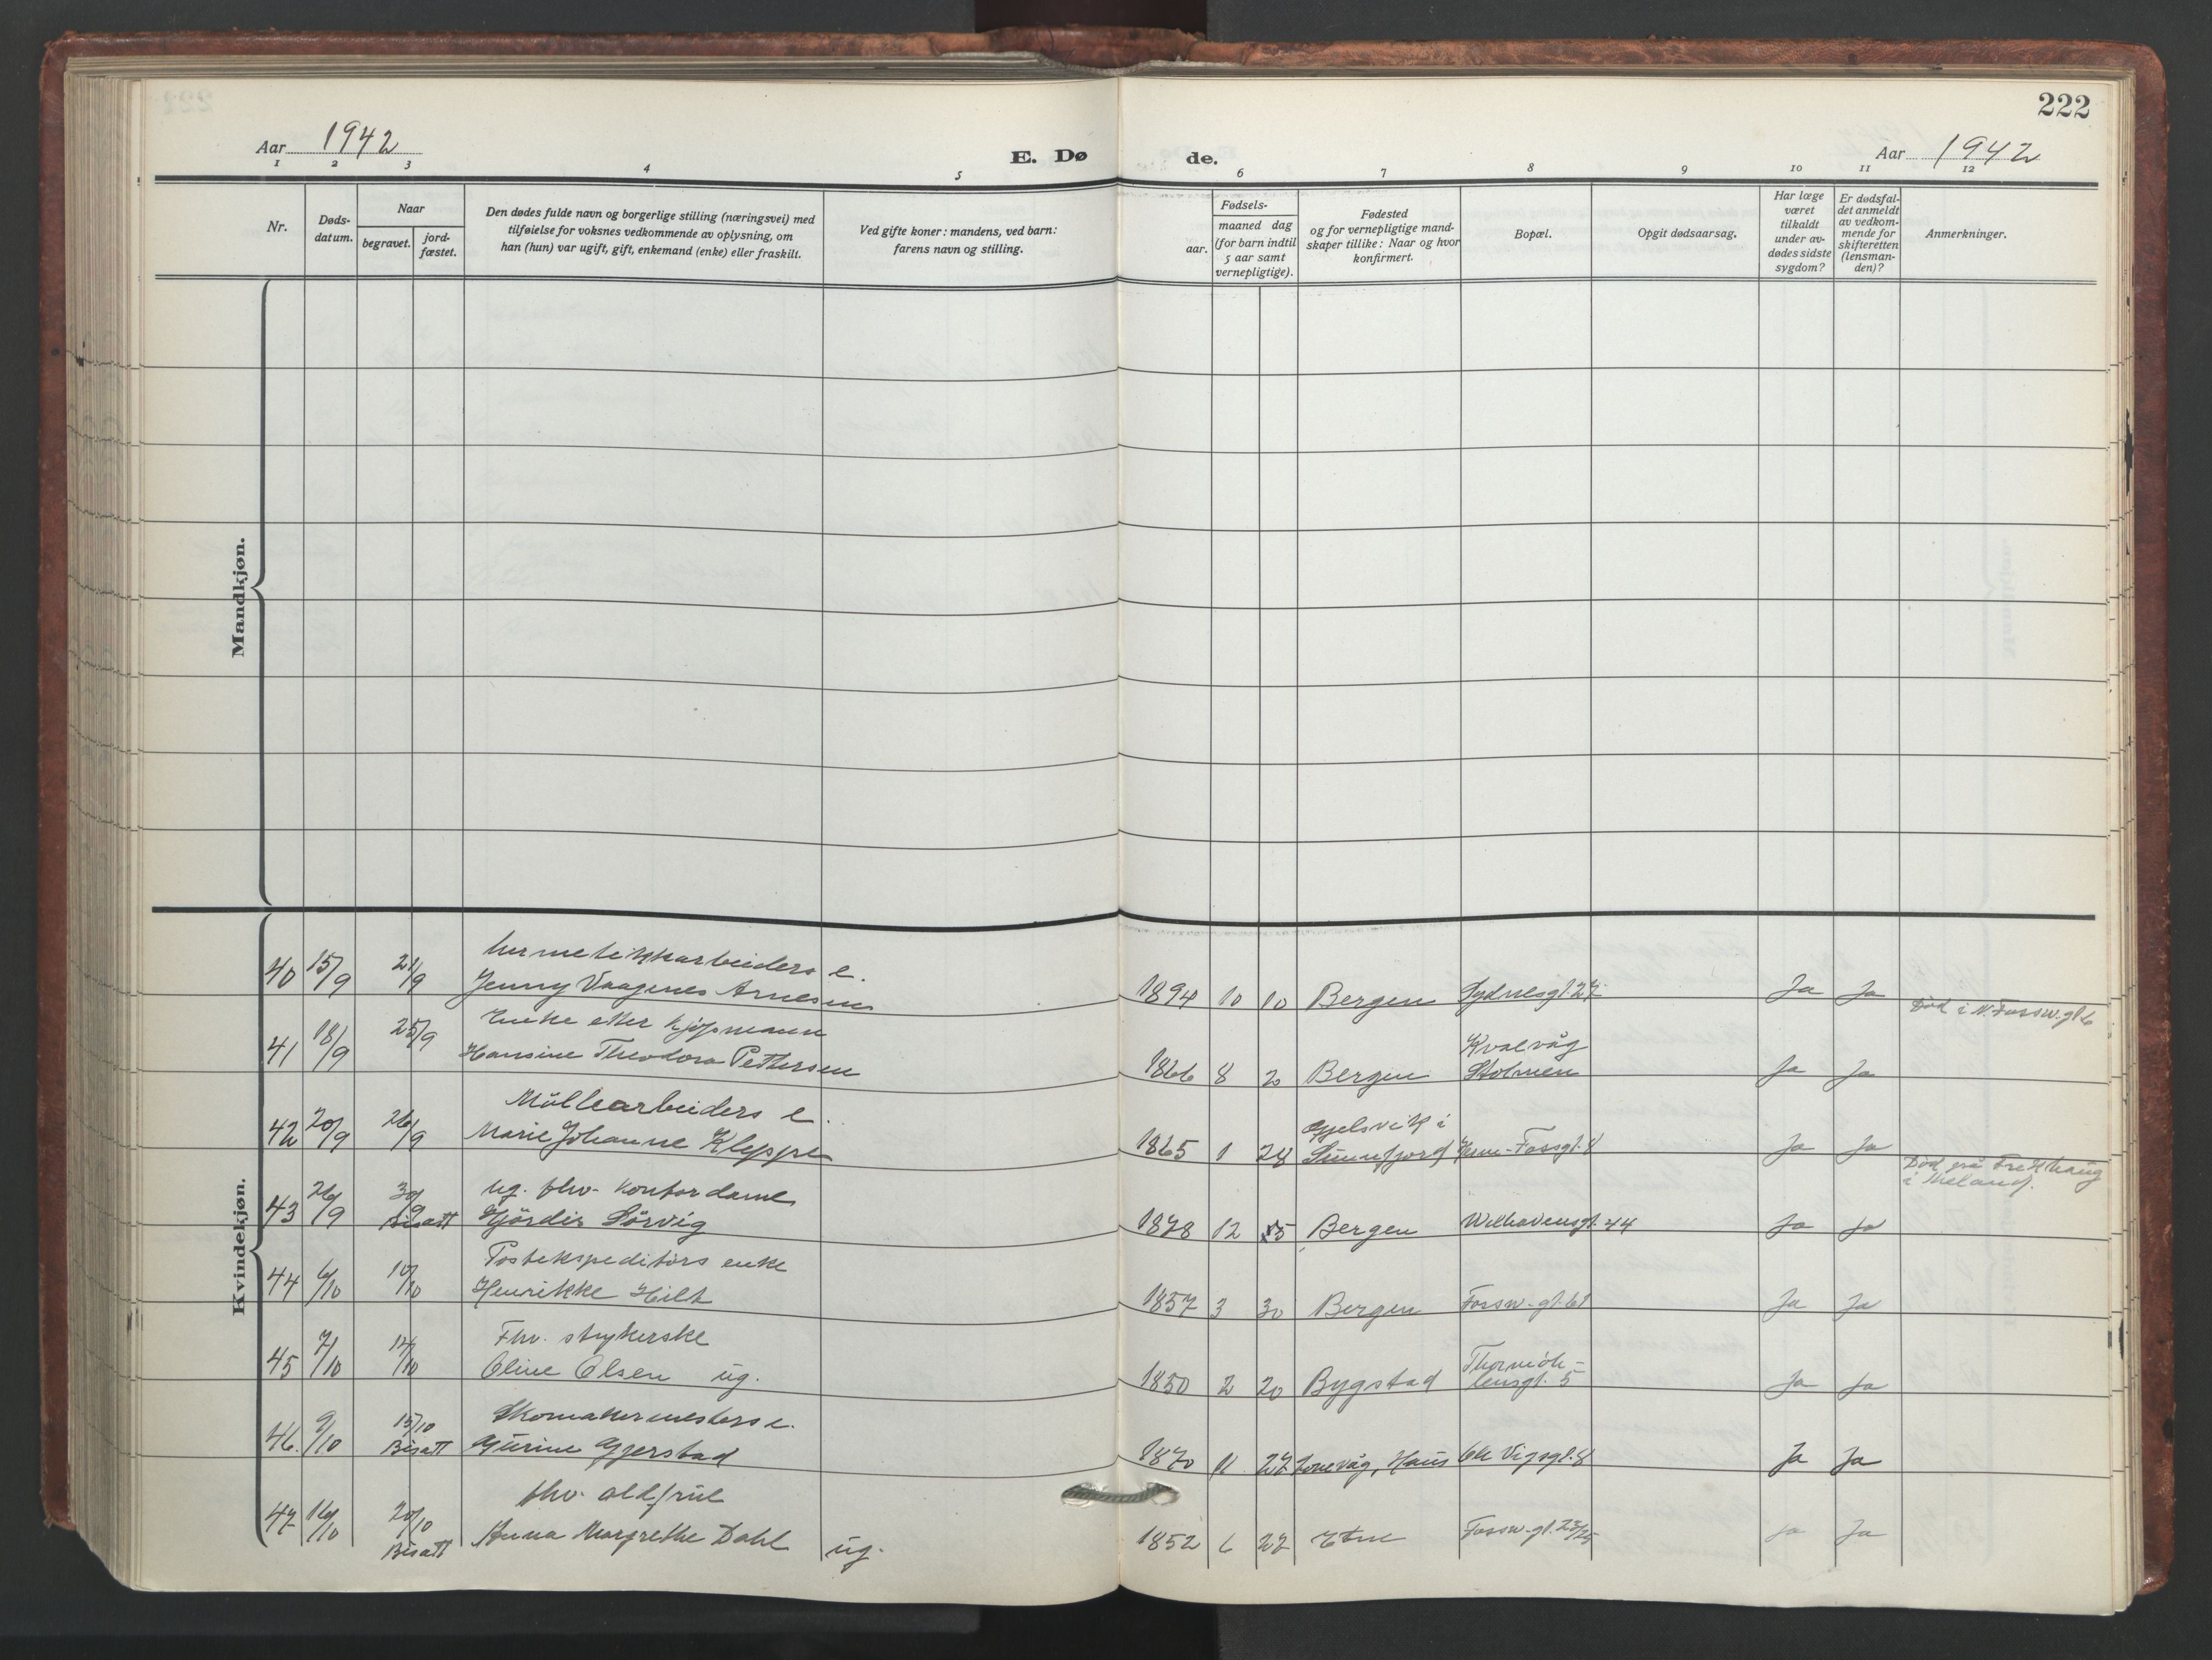 222
Aar 1942
E. Dø
de.
Aar 1942
1 2 3 4 5 6 7 8 9 10 11 12
Nr.
Døds-
datum.
Naar
begravet.
jord-
fæstet.
Den dødes fulde navn og borgerlige stilling (næringsvei) med
tilføielse for voksnes vedkommende av oplysning, om
han (hun) var ugift, gift, enkemand (enke) eller fraskilt.
Ved gifte koner: mandens, ved barn:
farens navn og stilling.
Fødsels-
aar.
maaned dag
(for barn indtil
5 aar samt
vernepligtige).
Fødested
og for vernepligtige mand-
skaper tillike: Naar og hvor
konfirmert.
Bopæl.
Opgit dødsaarsag.
Har læge
været
tilkaldt
under av-
dødes sidste
sygdom?
Er dødsfal-
det anmeldt
av vedkom-
mende for
skifteretten
(lensman-
den)?
Anmerkninger.
Mandkjøn.
Kvindekjøn.
hermetikkarbeiders e.
40 15/9 21/9 Jenny Vaagenes Arnesen 1894 10 10 Bergen Sydnesgt. 27 Ja Ja
Død i N. Fossw. gt 6
Enke etter kjøpmann
41 18/9 25/9 Hansine Theodora Pettersen 1866 8 20 Bergen
Kvalvåg
Stolmen Ja Ja
Møllearbeiders e.
42 20/9 26/9 Marie Johanne Kleppe 1865 1 28
Gjelsvik i
Sunnfjord Ja Ja
Død på Fredthaug
i
ug. fhv. kontordame
43 26/9 30/9 Bisatt Hjördis Sörvig 1878 12 5 Bergen Welhavensgt. 44 Ja Ja
Postekspeditörs enke
44 6/10 10/10 Henrikke Hilt 1857 3 30 Bergen Fossw. gt. 61 Ja Ja
Fhv. strykerske
45 7/10 12/10 Oline Olsen ug. 1850 2 20 Bygstad
Thormöh-
lensgt. 5 Ja Ja
Skomakermesters e.
46. 9/10 15/10 Bisatt Gurine Gjerstad 1870 11 27 Lonevåg, Haus Ole Vigsgt. 8 Ja Ja
fhv. oldfrue
47 16/10 20/10 Bisatt Anna Margrethe Dahl ug. 1852 6 27 Etne Fossw. gt. 23/25 Ja Ja